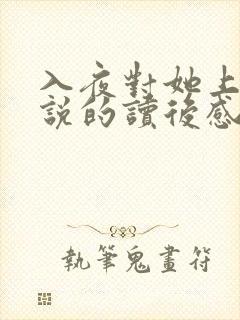 入夜對她上
說的讀後感
執筆鬼畫符